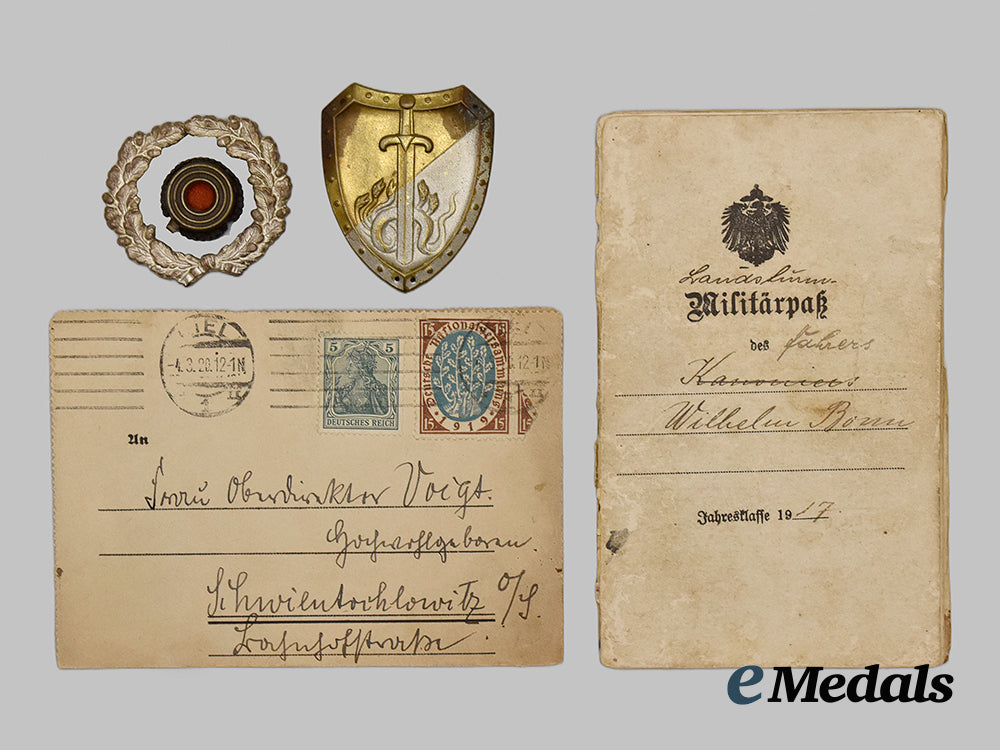 KIEL
-4.3.20.12-1N
5 5
DEUTSCHES REICH
15 15
Deutsche Nationalversammlung
* 1919 *
15 15
An
Frau Oberdirektor Voigt.
Hochwohlgeboren.
Schwientochlowitz O/S.
Bahnhofstraße
Landsturm-
Militärpaß
des Fahrers
Kanoniers
Wilhelm Bonn
Jahresklasse 1917.
eMedals